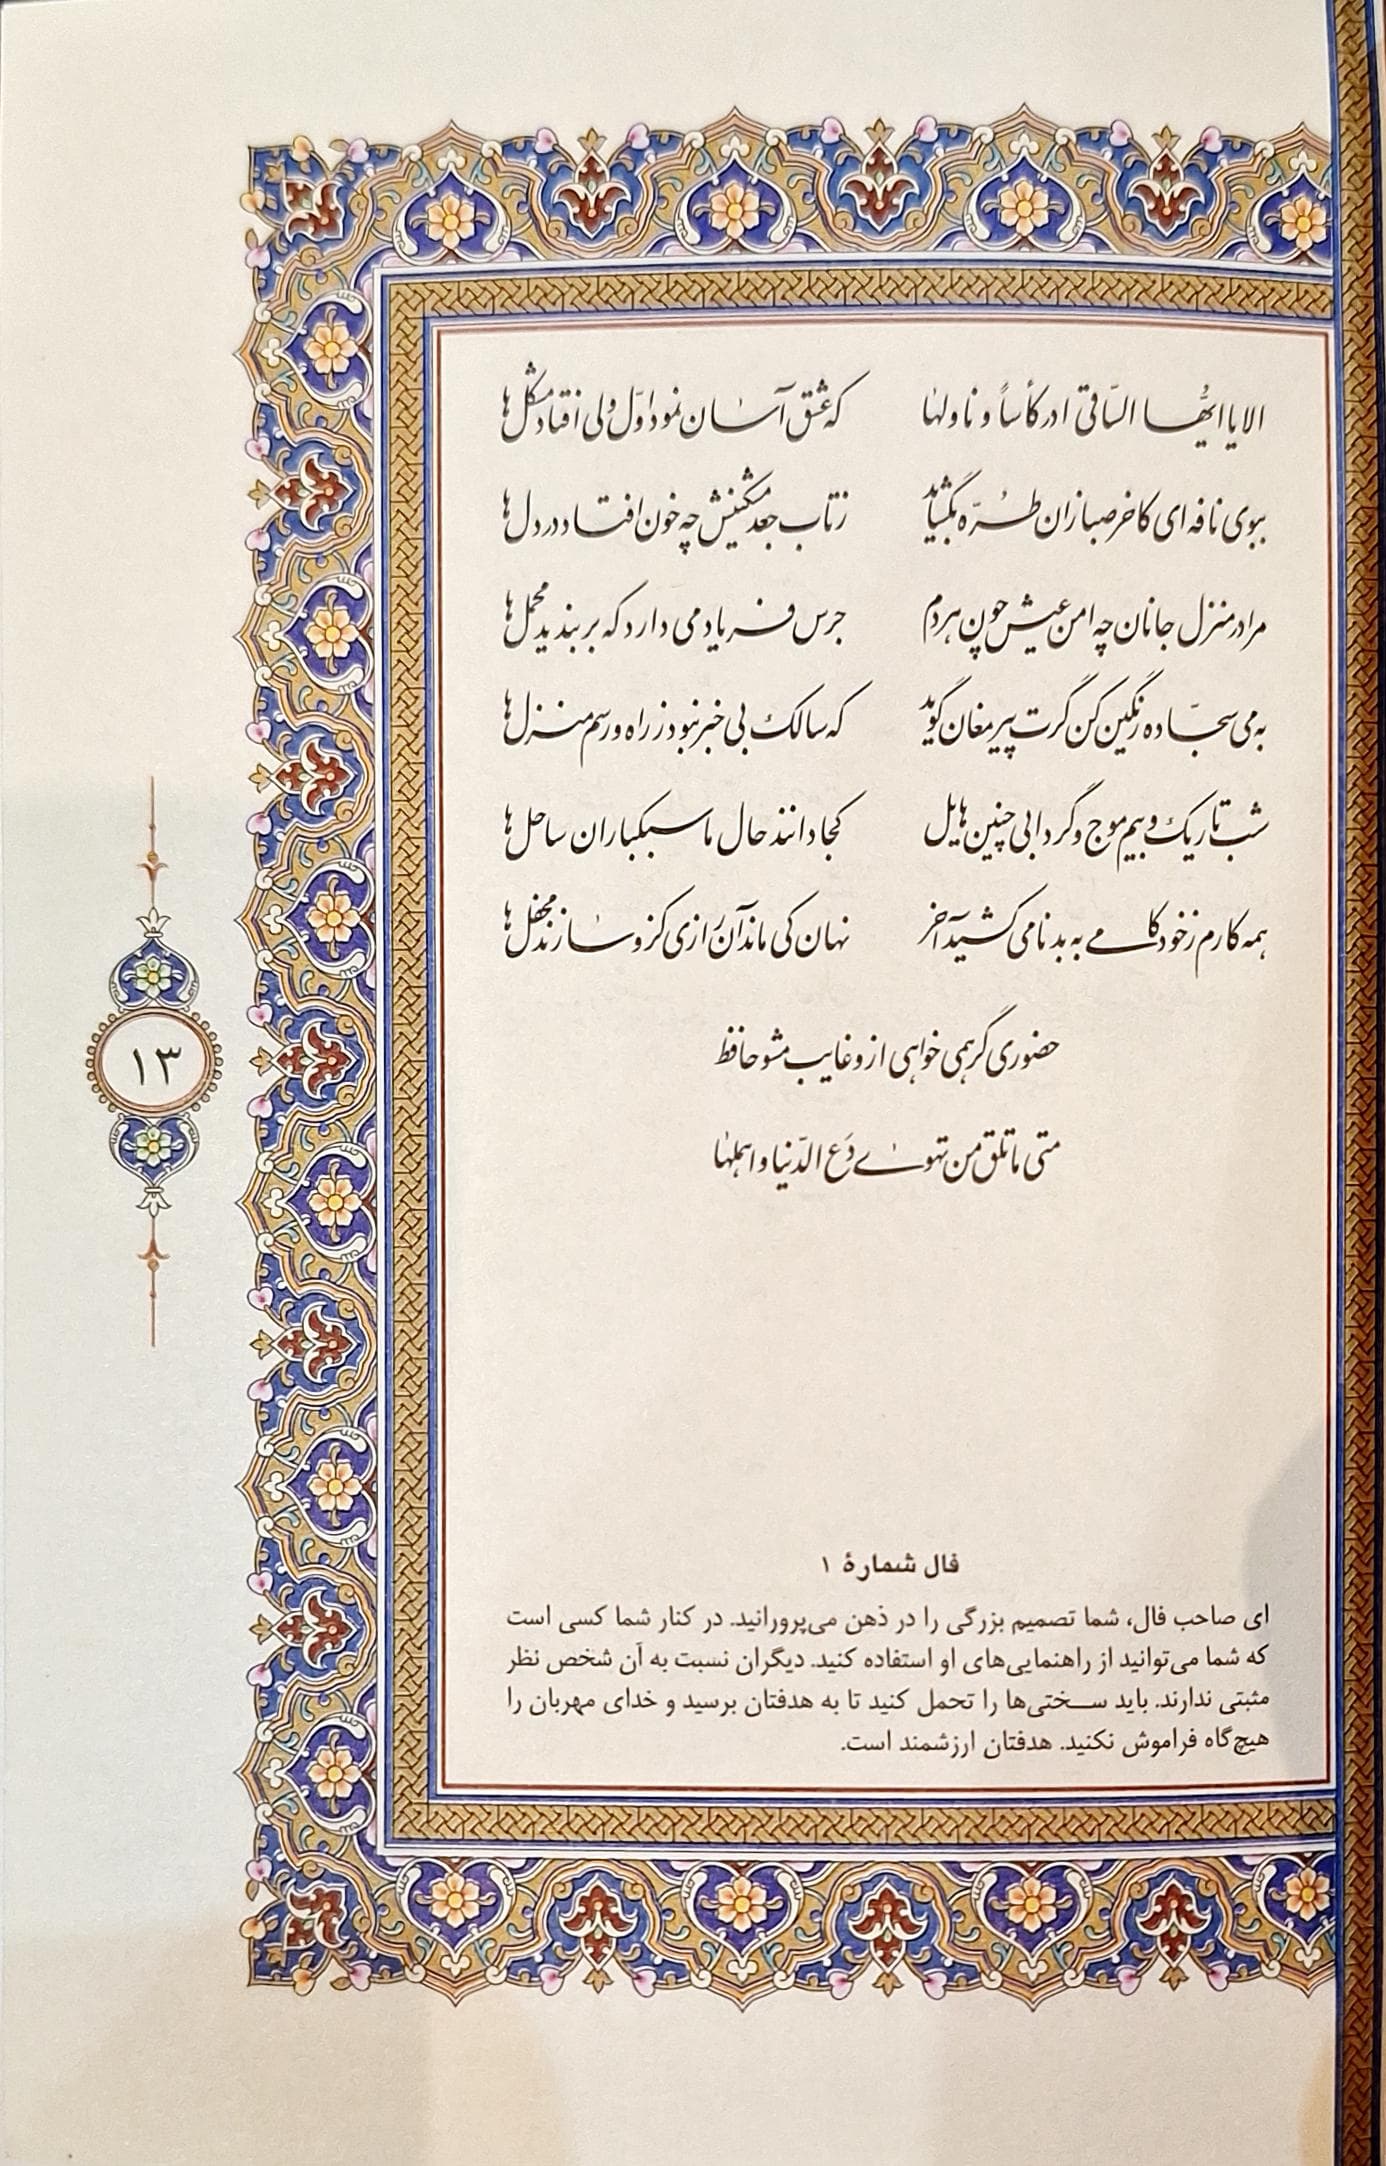 الا یا ایُّها السّاقی ادر کأساً و ناولها که عشق آسان نمود اوّل ولی افتاد مشکل‌ها
ببوی نافه‌ای کاخر صبا زان طُرّه بگشاید ز تاب جعد مشکینش چه خون افتاد در دل‌ها
مرا در منزل جانان چه امن عیش چون هر دم جرس فریاد می‌دارد که بربندید محمل‌ها
به می سجّاده رنگین کن گرت پیر مغان گوید که سالک بی‌خبر نبود ز راه و رسم منزل‌ها
شب تاریک و بیم موج و گردابی چنین هایل کجا دانند حال ما سبکباران ساحل‌ها
همه کارم ز خود کامی به بدنامی کشید آخر نهان کی ماند آن رازی کزو سازند محفل‌ها
حضوری گر همی خواهی ازو غایب مشو حافظ
متی ما تلق من تهوی دَع الدّنیا و اهملها
۱۳
فال شمارهٔ ۱
ای صاحب فال، شما تصمیم بزرگی را در ذهن می‌پرورانید. در کنار شما کسی است
که شما می‌توانید از راهنمایی‌های او استفاده کنید. دیگران نسبت به آن شخص نظر
مثبتی ندارند. باید سختی‌ها را تحمل کنید تا به هدفتان برسید و خدای مهربان را
هیچ‌گاه فراموش نکنید. هدفتان ارزشمند است.